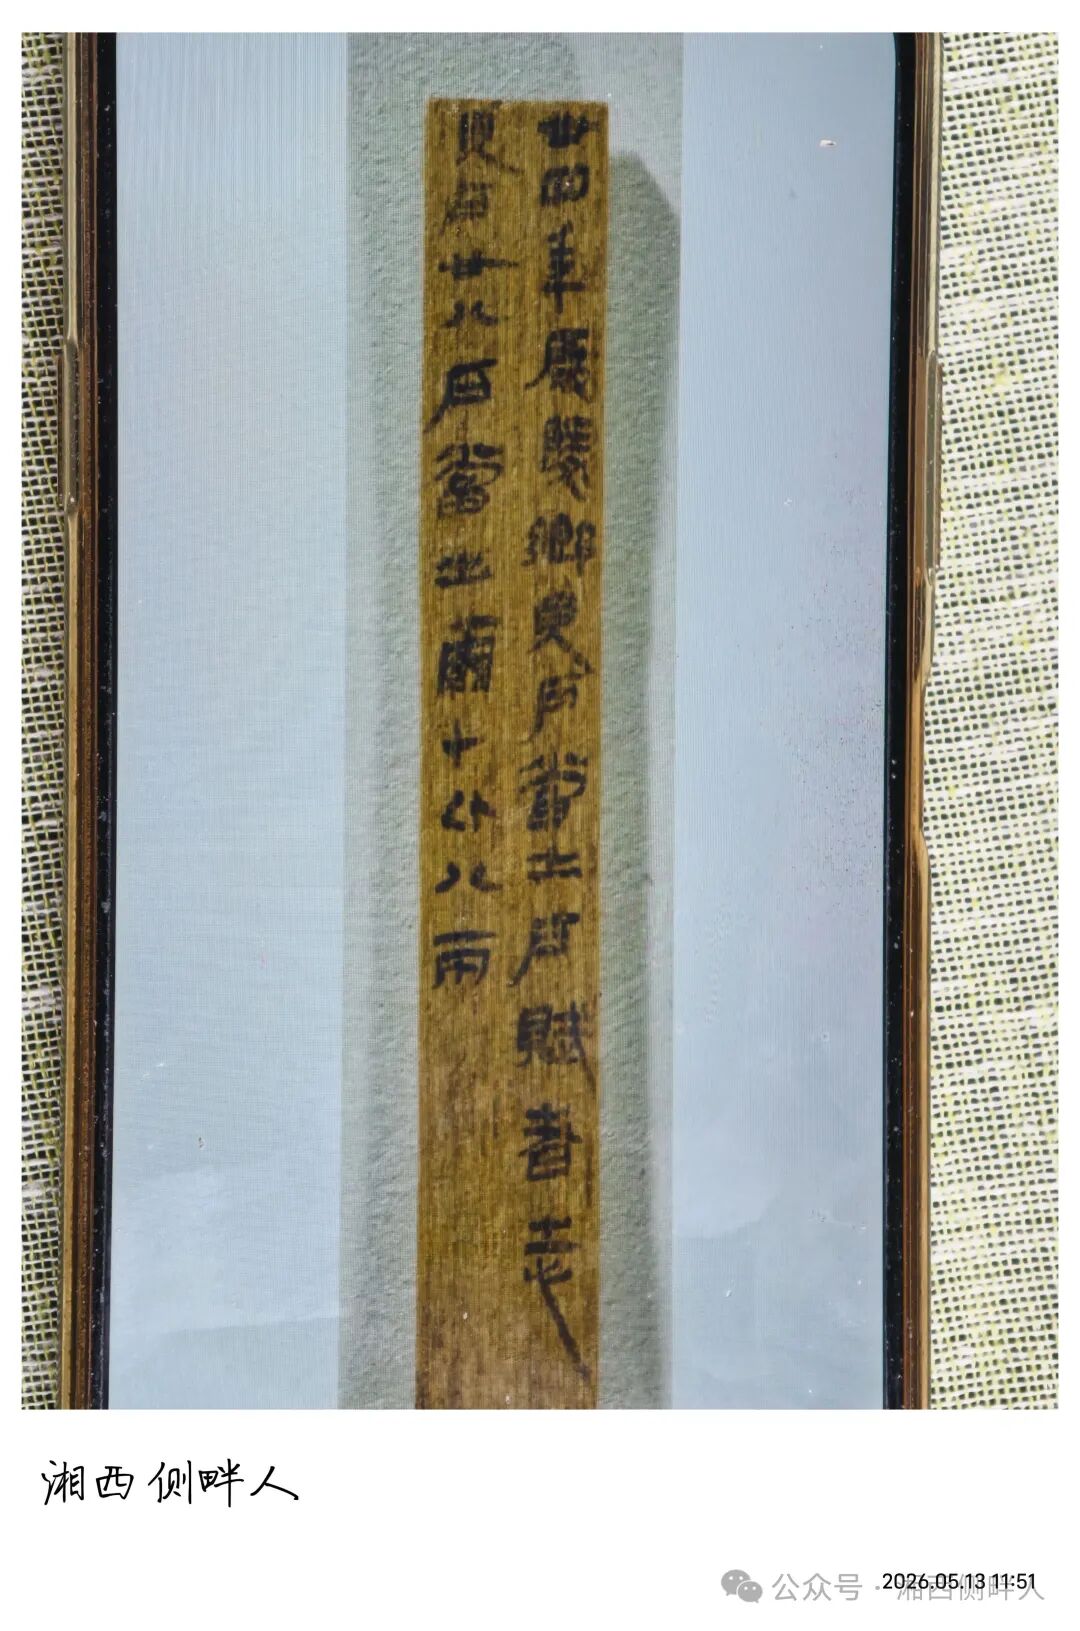 卅四年啟陵鄉見戶當出戶賦者志
見戶廿八戶當出繭十斤八兩
湘西侧畔人
公众号 · 湘西侧畔人
2026.05.13 11:51